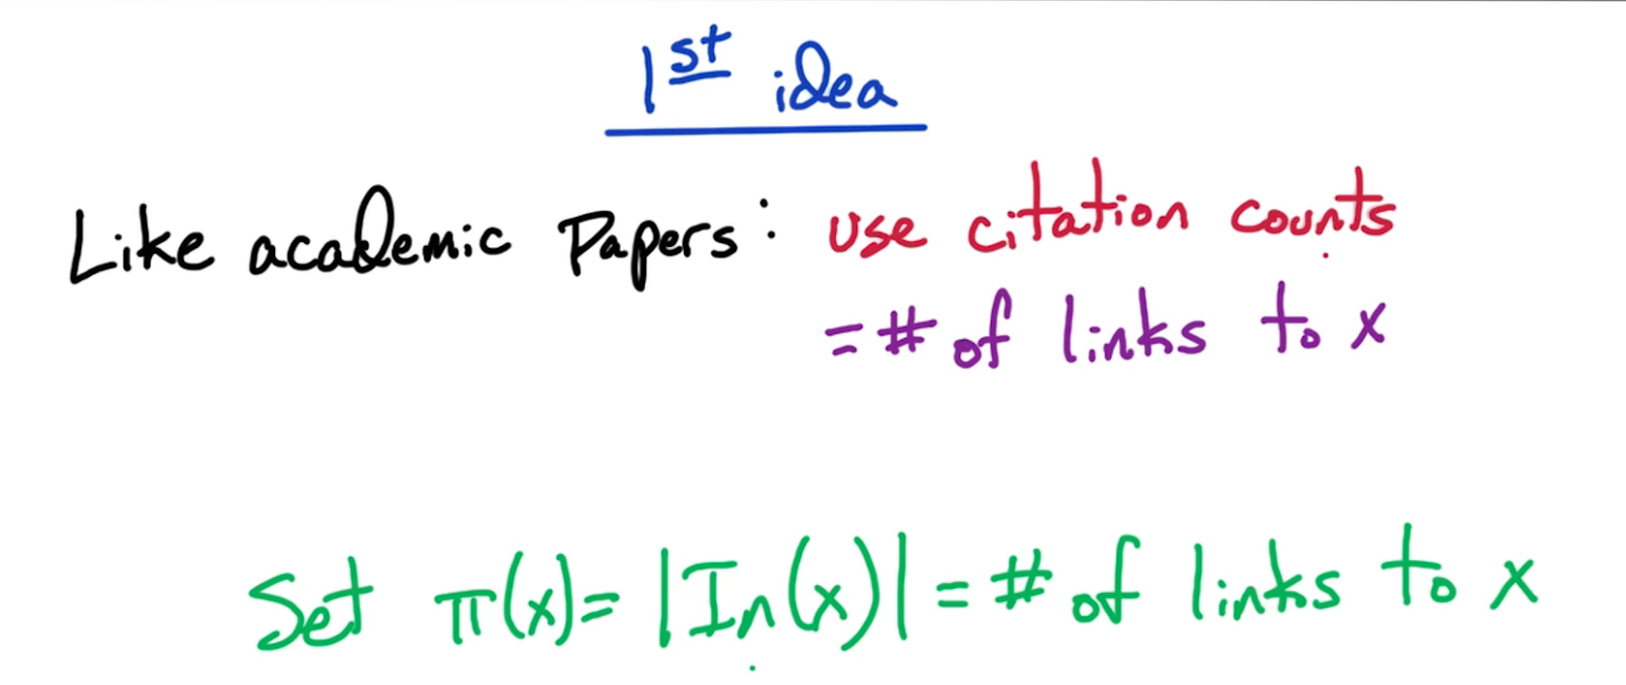 1st idea
Like academic Papers: use citation counts
= # of links to x
Set π(x) = |In(x)| = # of links to x